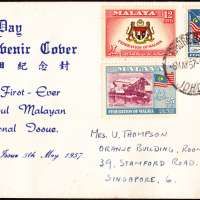 Day
venir Cover
日 紀 念 封
First - Ever
ul Malayan
onal Issue.
Issue 5th May 1957
MALAYA
12
FEDERATION OF MALAYA
MALAYA
25
FEDERATION OF MALAYA
JOHO
MRS. U. THOMPSON
ORANJE BUILDING, ROOM
39, STAMFORD ROAD.
SINGAPORE, 6.